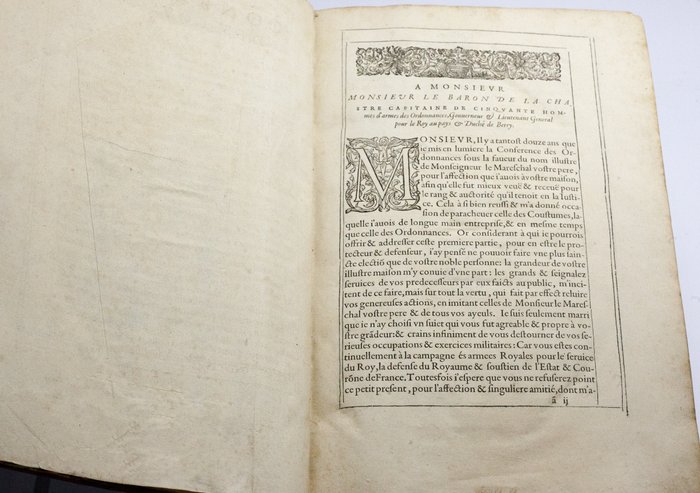 A MONSIEVR
MONSIEVR LE BARON DE LA CHA
STRE CAPITAINE DE CINQVANTE HOM-
mes d'armes des Ordonnances, Gouuerneur & Lieutenant General
pour le Roy au pays & Duché de Berry.
MONSIEVR, Il y a tantost douze ans que
ie mis en lumiere la Conference des Or-
donnances sous la faueur du nom illustre
de Monseigneur le Mareschal vostre pere,
pour l'affection que i'auois à vostre maison,
afin qu'elle fut mieux veuë & receuë pour
le rang & auctorité qu'il tenoit en la Iusti-
ce. Cela à si bien reussi & m'a donné occa-
sion de paracheuer celle des Coustumes, la-
quelle i'auois de longue main entreprise, & en mesme temps
que celle des Ordonnances. Or considerant à qui ie pourrois
offrir & addresser ceste premiere partie, pour en estre le pro-
tecteur & defenseur, i'ay pensé ne pouuoir faire vne plus sain-
cte electiõ que de vostre noble personne: la grandeur de vostre
illustre maison m'y conuie d'vne part: les grands & seignalez
seruices de vos predecesseurs par eux faicts au public, m'inci-
tent de ce faire, mais sur tout la vertu, qui fait par effect reluire
vos genereuses actions, en imitant celles de Monsieur le Mares-
chal vostre pere & de tous vos ayeuls. Ie suis seulement marri
que ie n'ay choisi vn suiet qui vous fut agreable & propre à vo-
stre grãdeur: & crains infiniment de vous destourner de vos se-
rieuses occupations & exercices militaires: Car vous estes con-
tinuellement à la campagne és armees Royales pour le seruice
du Roy, la defense du Royaume & soustien de l'Estat & Cou-
rõne de France. Toutesfois i'espere que vous ne refuserez point
ce petit present, pour l'affection & singuliere amitié, dont m'a-
ã ij